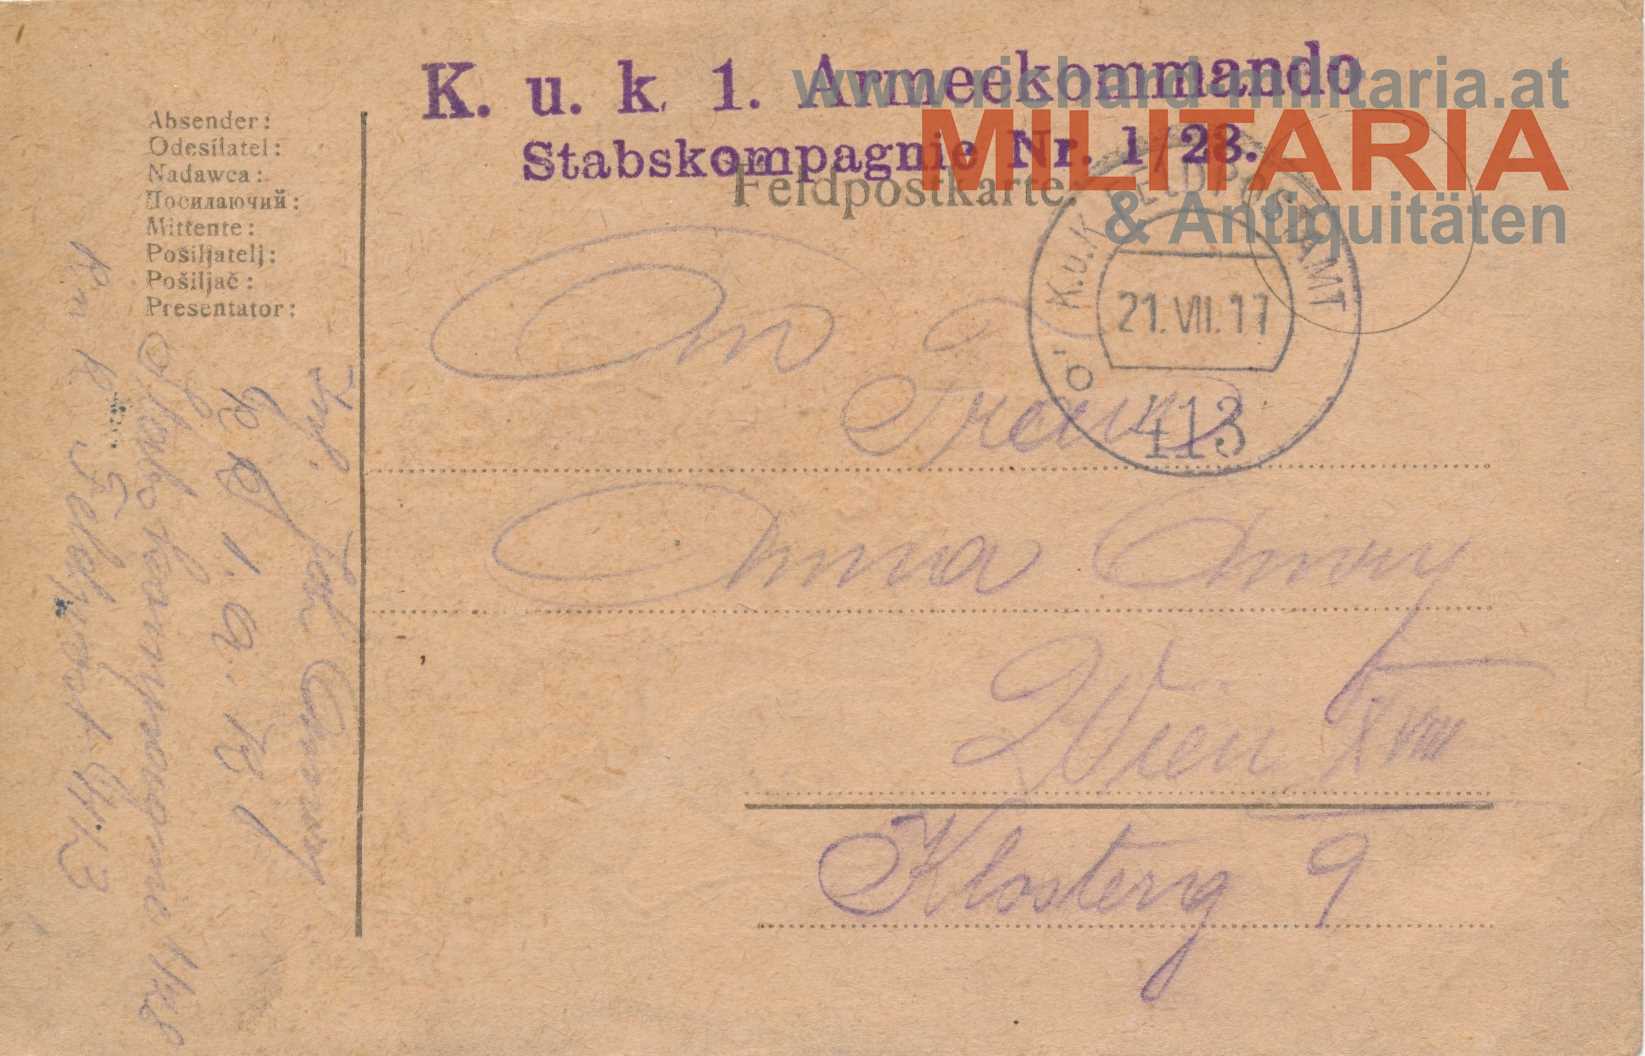 K. u. k. 1. Armeekommando
www.richard-militaria.at
MILITARIA
& Antiquitäten
Stabskompagnie Nr. 1/28.
Feldpostkarte.
Absender:
Odesílatel:
Nadawca:
Посилаючий:
Mittente:
Pošiljatelj:
Pošiljač:
Presentator:
K.u.K. FELDPOSTAMT
21.VII.17
413
An
Frau
Anna
Wien XVIII
Klosterg 9
Inf. Joh.
k k 1. A. K
Stabskompagnie 1/28
K u K Feldpost 413